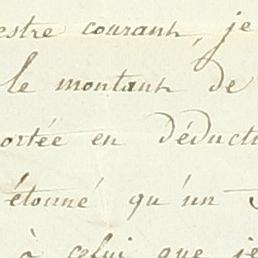 estre courant, je
le montant de
ortée en déducti
étonné qu'un
à celui que je